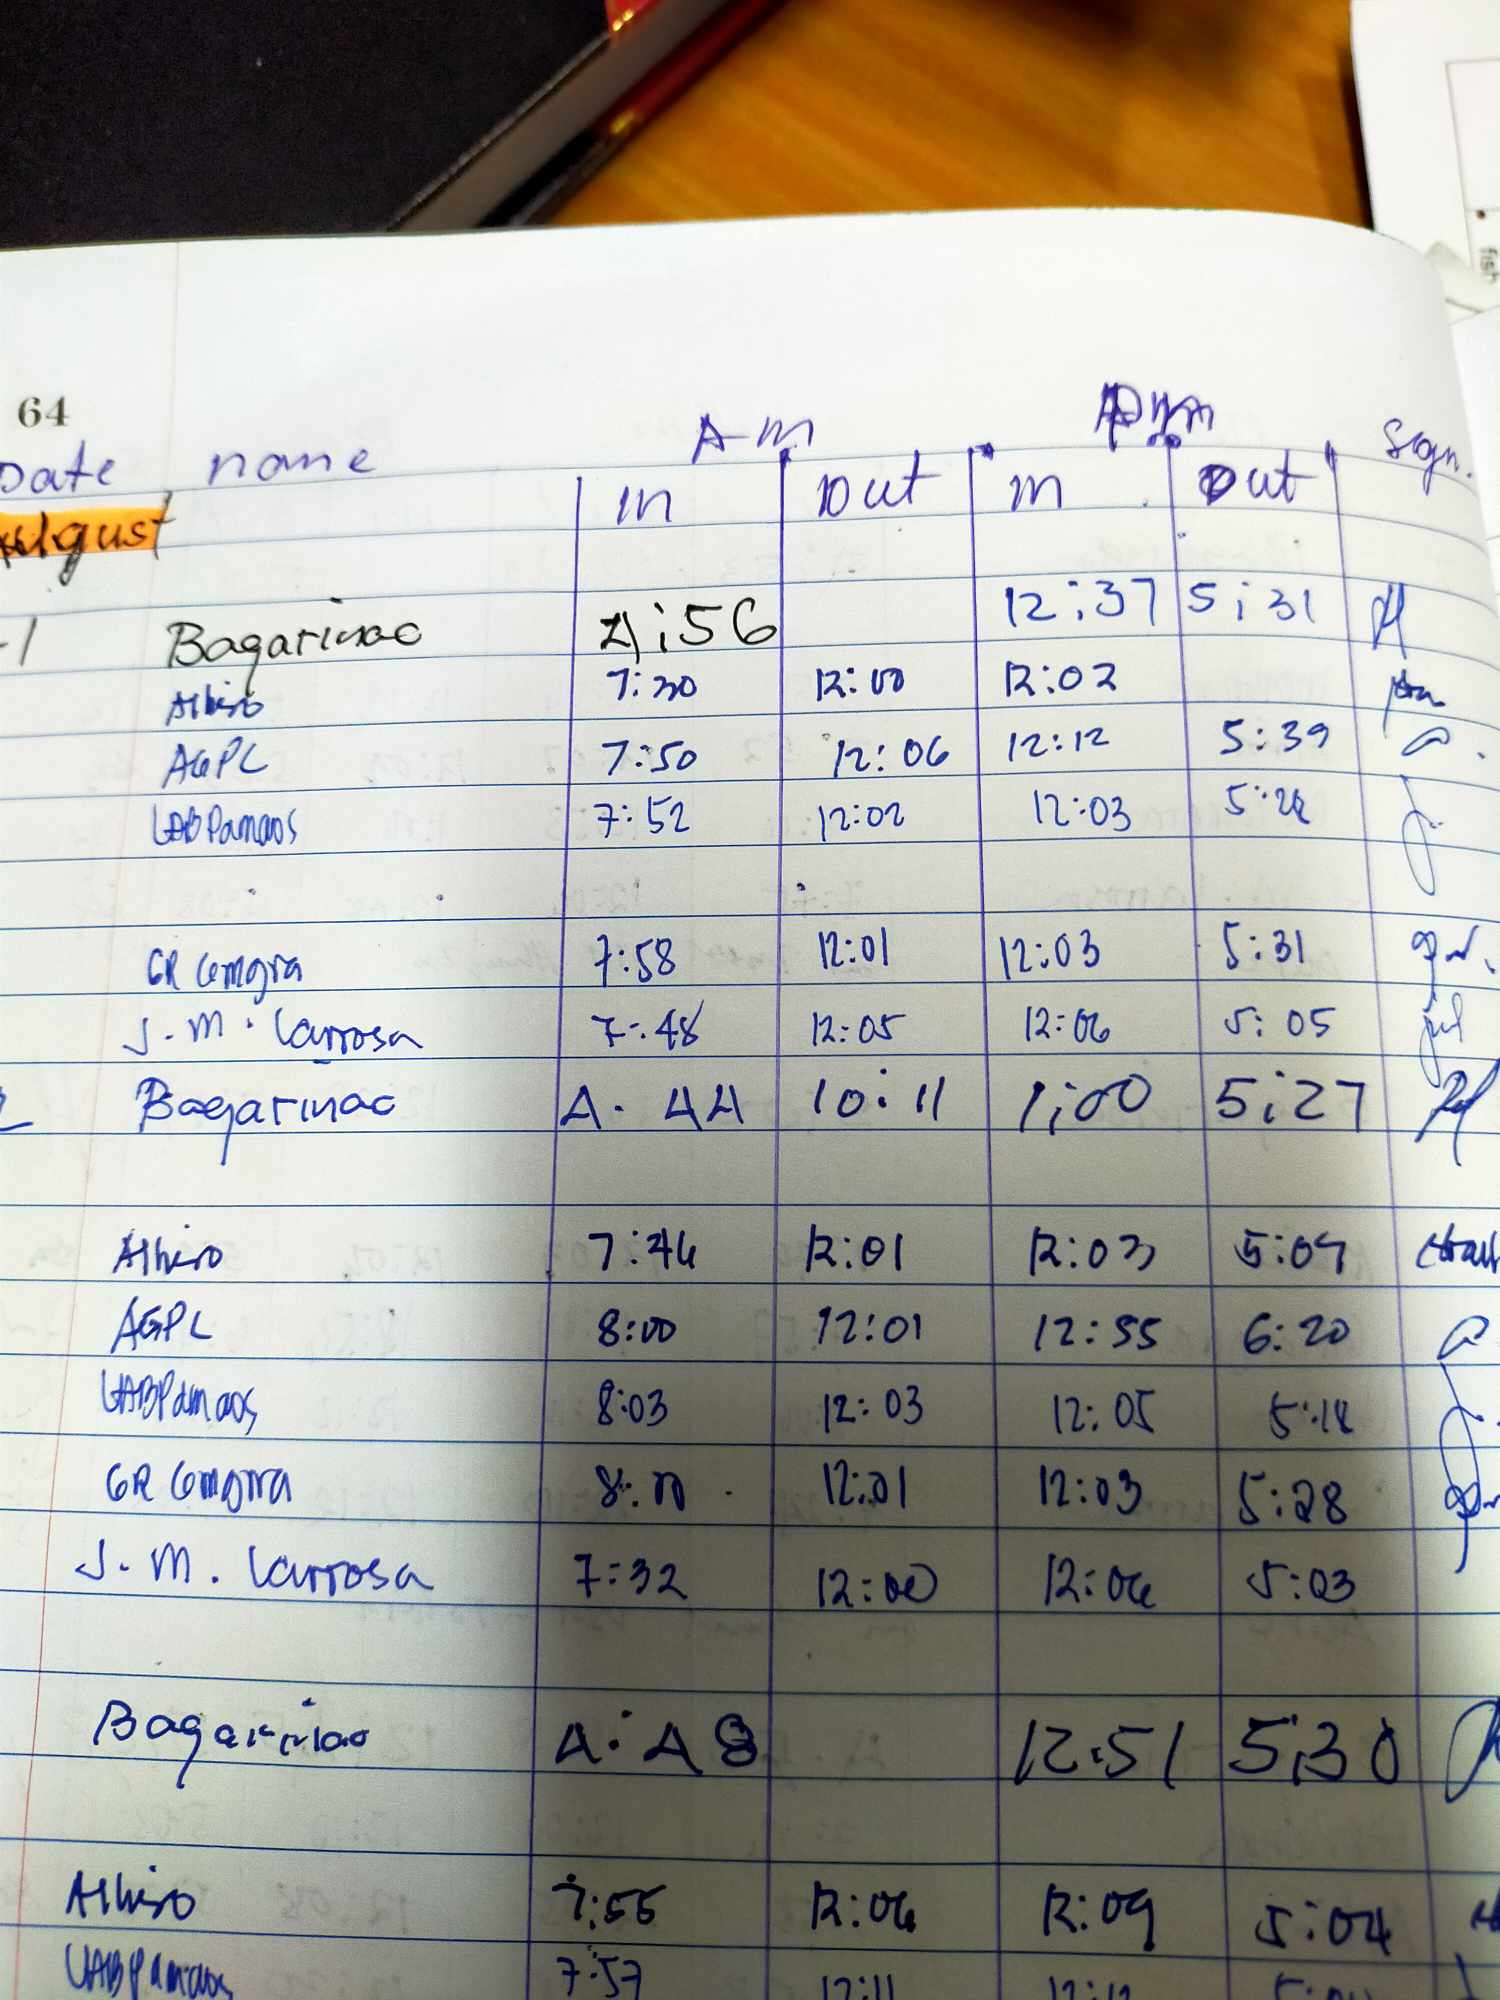 64
A-m
Date name In Out In Out Sign.
August
-1 Bagarinao 4:56 12:37 5:31
Albiso 7:30 12:00 12:02
AGPL 7:50 12:06 12:12 5:39
LABPamaos 7:52 12:02 12:03 5:28
GR Gemgra 7:58 12:01 12:03 5:31
J. M. Larrosa 7:48 12:05 12:06 5:05
2 Bagarinao 4:44 10:11 1:00 5:27
Albiso 7:46 12:01 12:03 5:04
AGPL 8:00 12:01 12:55 6:20
LABPamaos 8:03 12:03 12:05 5:18
GR Gemgra 8:00 12:01 12:03 5:28
J. M. Larrosa 7:32 12:00 12:06 5:03
Bagarinao 4:48 12:51 5:30
Albiso 7:55 12:06 12:09 5:04
LABPamaos 7:57 12:11 12:12
fish